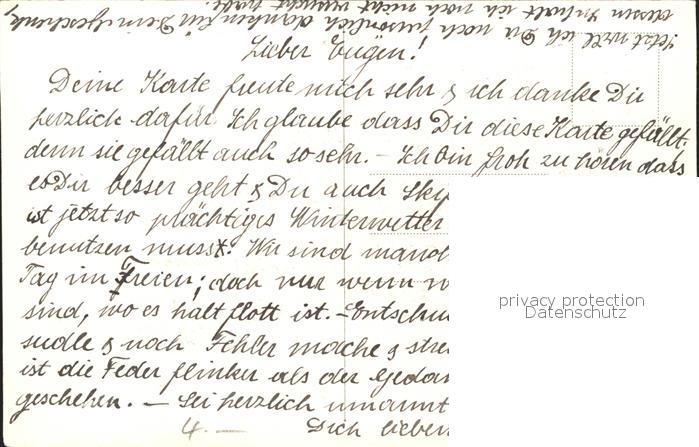 Lieber Eugen!
Deine Karte freute mich sehr & ich danke Dir
herzlich dafür. Ich glaube dass Dir diese Karte gefällt,
denn sie gefällt auch so sehr. – Ich bin froh zu hören dass
es Dir besser geht & Du auch Sky
ist jetzt so prächtiges Winterwetter
benutzen musst. Wir sind manch
Tag im Freien; doch nur wenn w
sind, wo es halt flott ist. – Entschu
sudle & noch Fehler mache & stre
ist die Feder flinker als der Gedan
geschehen. – Sei herzlich umarmt
4. – Dich lieben
Jetzt will ich Dir noch persönlich danken für Dein Geschenk,
dessen Inhalt ich noch nicht versucht habe.
privacy protection
Datenschutz